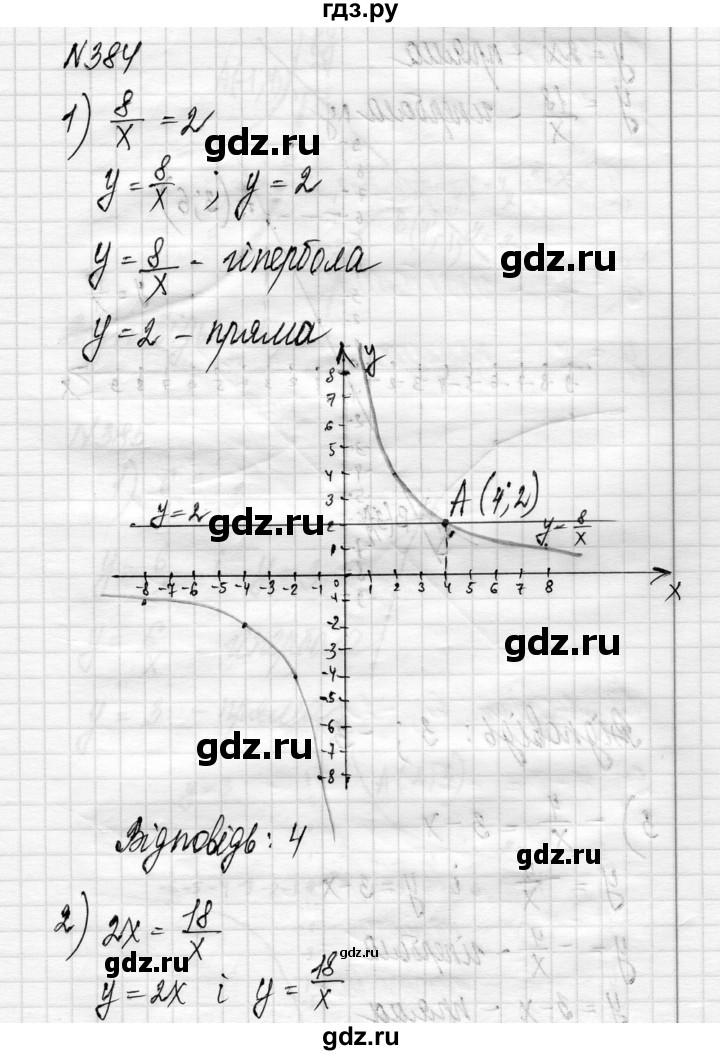 гдз.ру
№384
1) 8/x = 2
gdz.ru
y = 8/x ; y = 2
y = 8/x - гіпербола
gdz.ru
y = 2 - пряма
y
8
7
6
5
4
3
2
1
A (4; 2)
y = 2
y = 8/x
-8 -7 -6 -5 -4 -3 -2 -1 0 1 2 3 4 5 6 7 8
x
-1
-2
-3
-4
-5
-6
-7
-8
gdz.ru
gdz.ru
Відповідь: 4
gdz.ru
2) 2x = 18/x
gdz.ru
gdz.ru
y = 2x і y = 18/x
gdz.ru